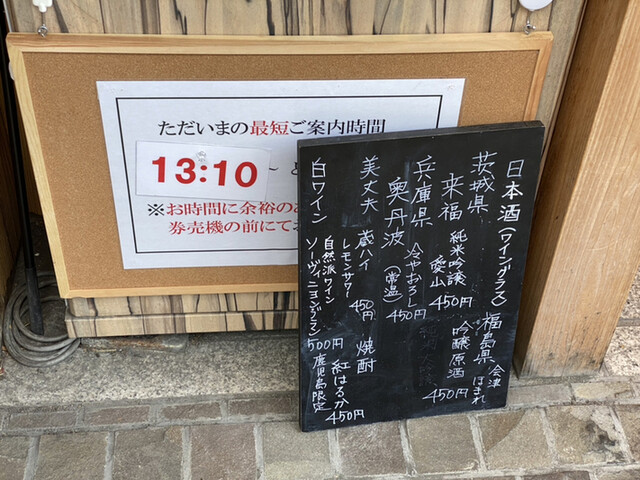 ただいまの最短ご案内時間
13:10
~
※お時間に余裕の
券売機の前にて
日本酒(ワイングラス)
福島県 会津ほまれ
吟醸原酒
450円
茨城県
来福 純米吟醸
愛山
450円
兵庫県 冷やおろし
奥丹波(常温) 450円
美丈夫 蔵ハイ
レモンサワー
450円
焼酎
紅はるか
鹿児島限定
450円
白ワイン
自然派ワイン
ソーヴィニヨンブラン
500円